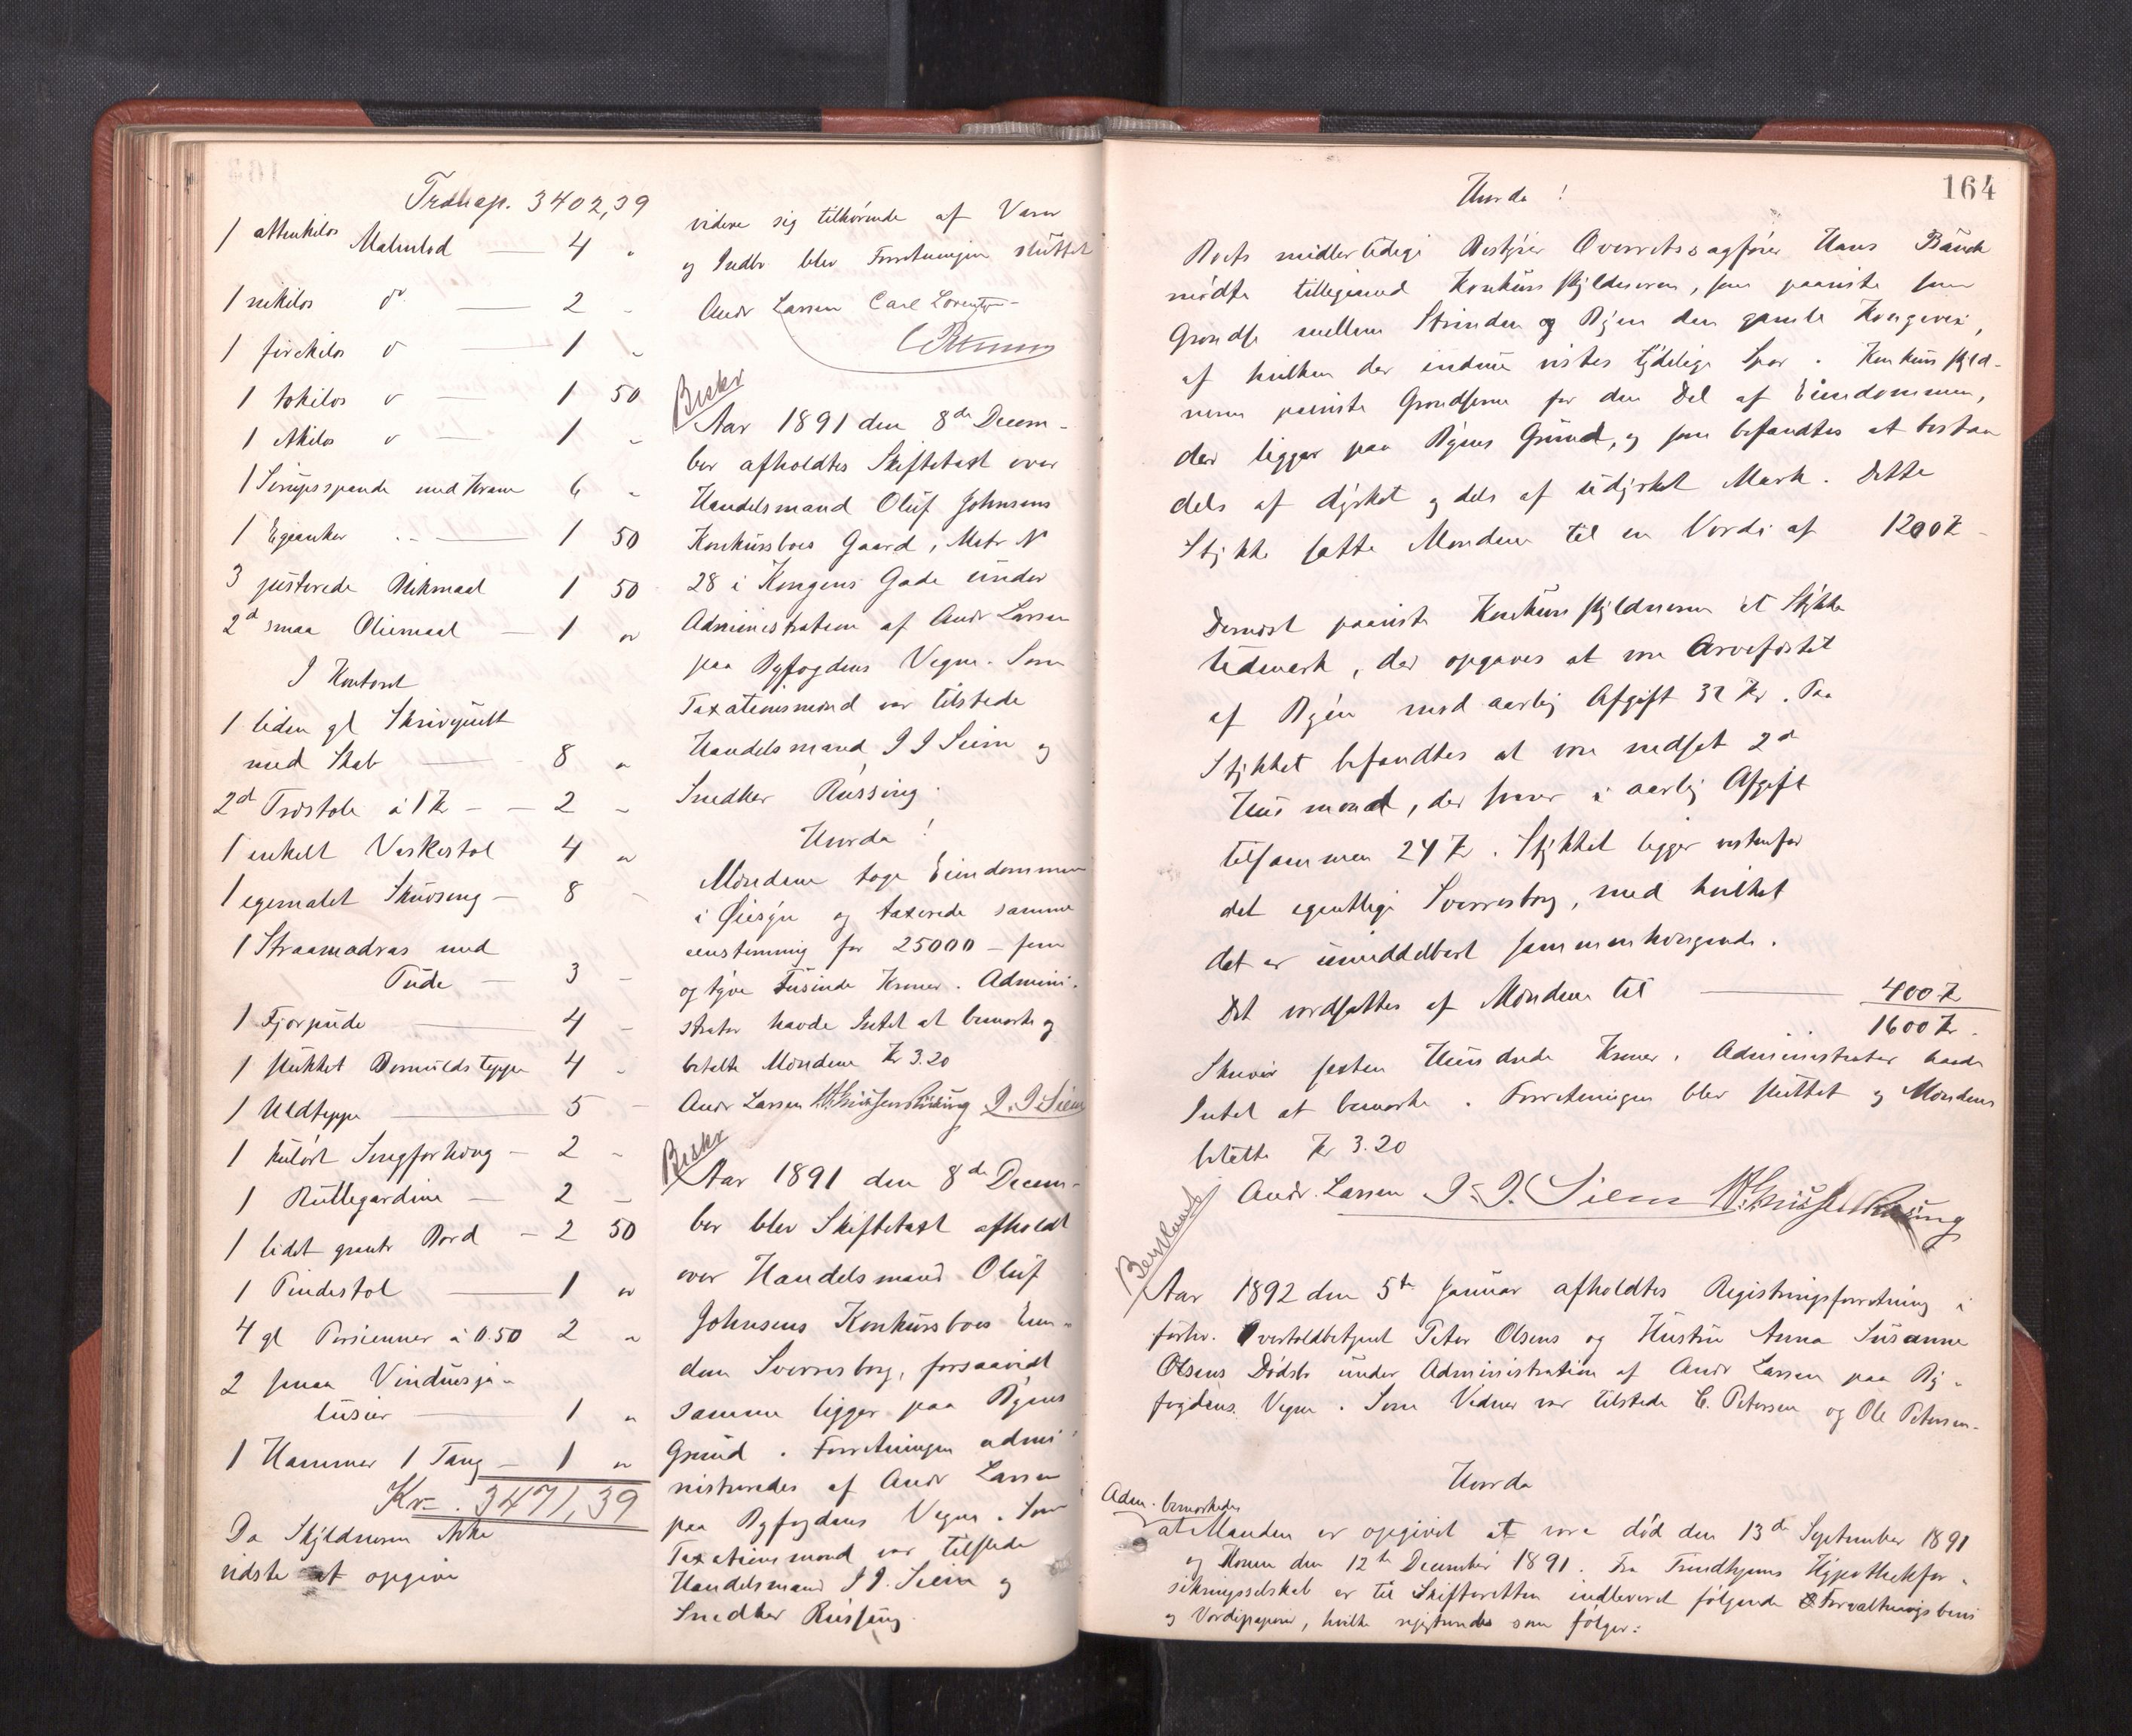 Transp. 3402,39
1 ottekilos Malmlod — 4 "
1 nikilos do — 2 "
1 firekilos do — 1 "
1 tokilos do — 1 50
1 etkilos do — 1 "
1 Sirupsspande med Krane 6 "
1 Egeanker — 1 50
3 justerede Blikmaal 1 50
2d smaa Oliemaal — 1 "
I Kontoret
1 liden gl Skrivepult
med Skab — 8 "
2d Træstole á 1 Kr — 2 "
1 enkelt Vaskestol 4 "
1 egemalet Skuvseng — 8 "
1 Straamadras med
Pude — 3 "
1 Fjærpude — 4 "
1 stukket Bomuldsteppe 4 "
1 Uldteppe — 5 "
1 kulørt Sengforhæng — 2 "
1 Rullegardine — 2 "
1 lidet grønt Bord — 2 50
1 Pindestol — 1 "
4 gl Persienner á 0.50 2 "
2 smaa Vinduesja-
lusier — 1 "
1 Hammer 1 Tang — 1 "
Kr. 3471,39
Da Skyldneren ikke
vidste at opgive
videre sig tilhørende af Varer
og Indbo blev Forretningen sluttet
Andr Larsen Carl Lorentzen
Beskr
Aar 1891 den 8de Decem-
ber afholdtes Skiftetaxt over
Handelsmand Oluf Johnsens
Konkursboes Gaard, Matr N
28 i Kongens Gade under
Administration af Andr Larsen
paa Byfogdens Vegne. Som
Taxationsmænd var tilstede
Handelsmand I I Siem og
Snedker Russing.
Hvorda!
Mændene toge Eiendommen
i Øiesyn og taxerede samme
eenstemmig for 25000 — fem
og tyve Tusinde Kroner. Admini-
strator havde Intet at bemærke og
betalte Mændene Kr 3.20
Andr Larsen I. I. Siem
Beskr
Aar 1891 den 8de Decem-
ber blev Skiftetaxt afholdt
over Handelsmand Oluf
Johnsens Konkursboes Eien-
dom Sverresborg, forsaavidt
samme ligger paa Byens
Grund. Forretningen admi-
nistreredes af Andr Larsen
paa Byfogdens Vegne. Som
Taxationsmænd var tilstede
Handelsmand I I. Siem og
Snedker Russing.
164
Hvorda!
Boets midlertidige Bestyrer Overretssagfører Hans Bauck
mødte tilligemed Konkursskyldneren, som paaviste som
Grændse mellem Strinden og Byen den gamle Kongevei,
af hvilken der endnu vistes tydelige Spor. Konkursskyld-
neren paaviste Grændserne for den Del af Eiendommen,
der ligger paa Byens Grund, og som befandtes at bestaa
dels af dyrket og dels af udyrket Mark. Dette
Stykke satte Mændene til en Værdi af 1200 Kr
Dernæst paaviste Konkursskyldneren et Stykke
Udmark, der opgaves at være Arvefæstet
af Byen med aarlig Afgift 32 Kr. Paa
Stykket befandtes at være nedsat 2d
Husmænd, der svarer i aarlig Afgift
tilsammen 24 Kr. Stykket ligger vestenfor
det egentlige Sverresborg, med hvilket
det er umiddelbart sammenhængende.
Det værdsattes af Mændene til — 400 Kr
1600 Kr.
Skriver sexten Hundrede Kroner. Administrator havde
Intet at bemærke. Forretningen blev sluttet og Mændene
betalte Kr 3.20
Andr. Larsen I. I. Siem
Aar 1892 den 5te Januar afholdtes Registringsforretning i
forhv. Overtoldbetjent Peter Olsens og Hustru Anna Susanne
Olsens Dødsbo under Administration af Andr Larsen paa By-
fogdens Vegne. Som Vidner var tilstede C. Petersen og Ole Petersen.
Hvorda
Adm. bemærkede
at Manden er opgivet at være død den 13de September 1891
og Konen den 12te December 1891. Fra Trondhjems Hypothekfor-
sikringsselskab er til Skifteretten indleveret følgende Forvaltningsbevis
og Værdipapirer, hvilke registreredes som følger: